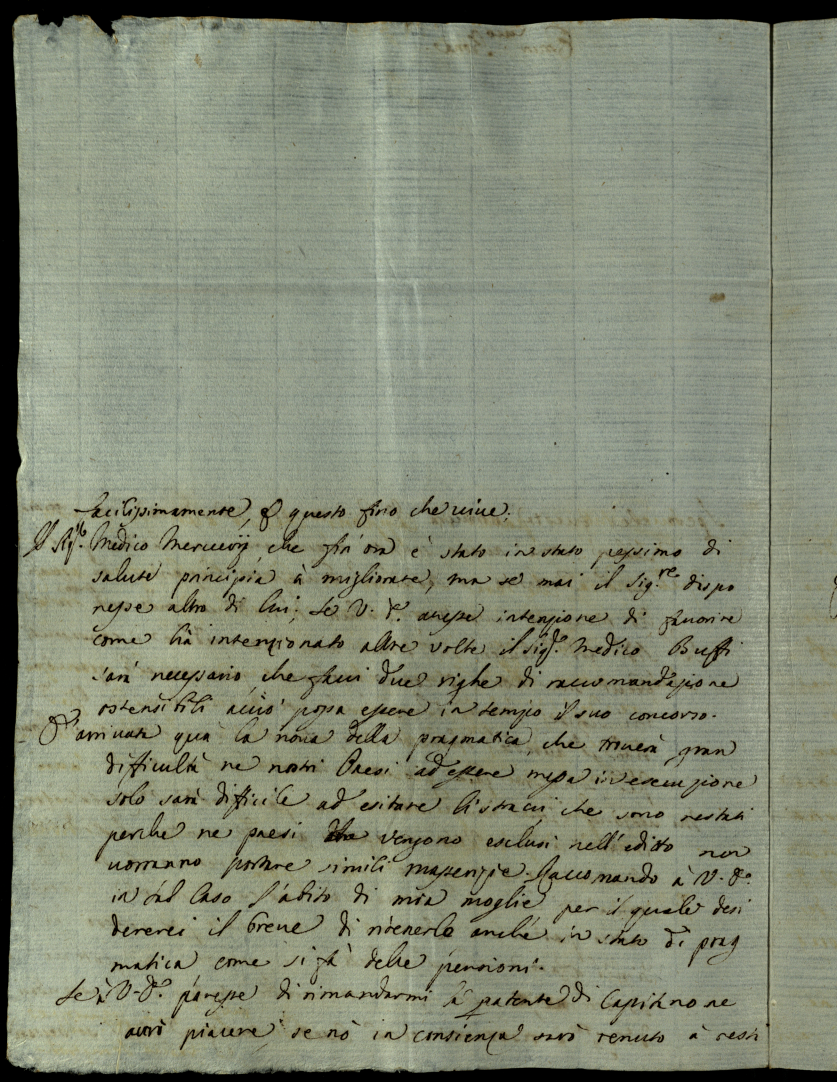 facilissimamente, e questo fino che vive.
Il Sig.r Medico Mercurij, che fin'ora è stato in stato pessimo di
salute principia à migliorare, ma se mai il Sig.re dispo
nesse altro di lui, se V. S. avesse intenzione di favorire
come hà intenzionato altre volte il Sig.r Medico Buffi
sarà necessario, che facci due righe di raccomandazione
ostensibili acciò possa essere in tempo il suo concorso.
È arrivata quà la nova della pragmatica, che troverà gran
difficultà ne nostri Paesi ad essere messa in esecuzione
solo sarà difficile ad esitare li stracci, che sono restati
perche ne paesi che vengono esclusi nell'editto non
vorranno portare simili massenzie. Raccomando à V. S.
in tal Caso l'abito di mia moglie per il quale desi
dererei il breve di ritenerlo anche in stato di prag
matica come si fà delle pensioni.
Se à V. S. paresse di rimandarmi la patente di Capitano ne
avrò piacere, se nò in consienza sarò tenuto à resti